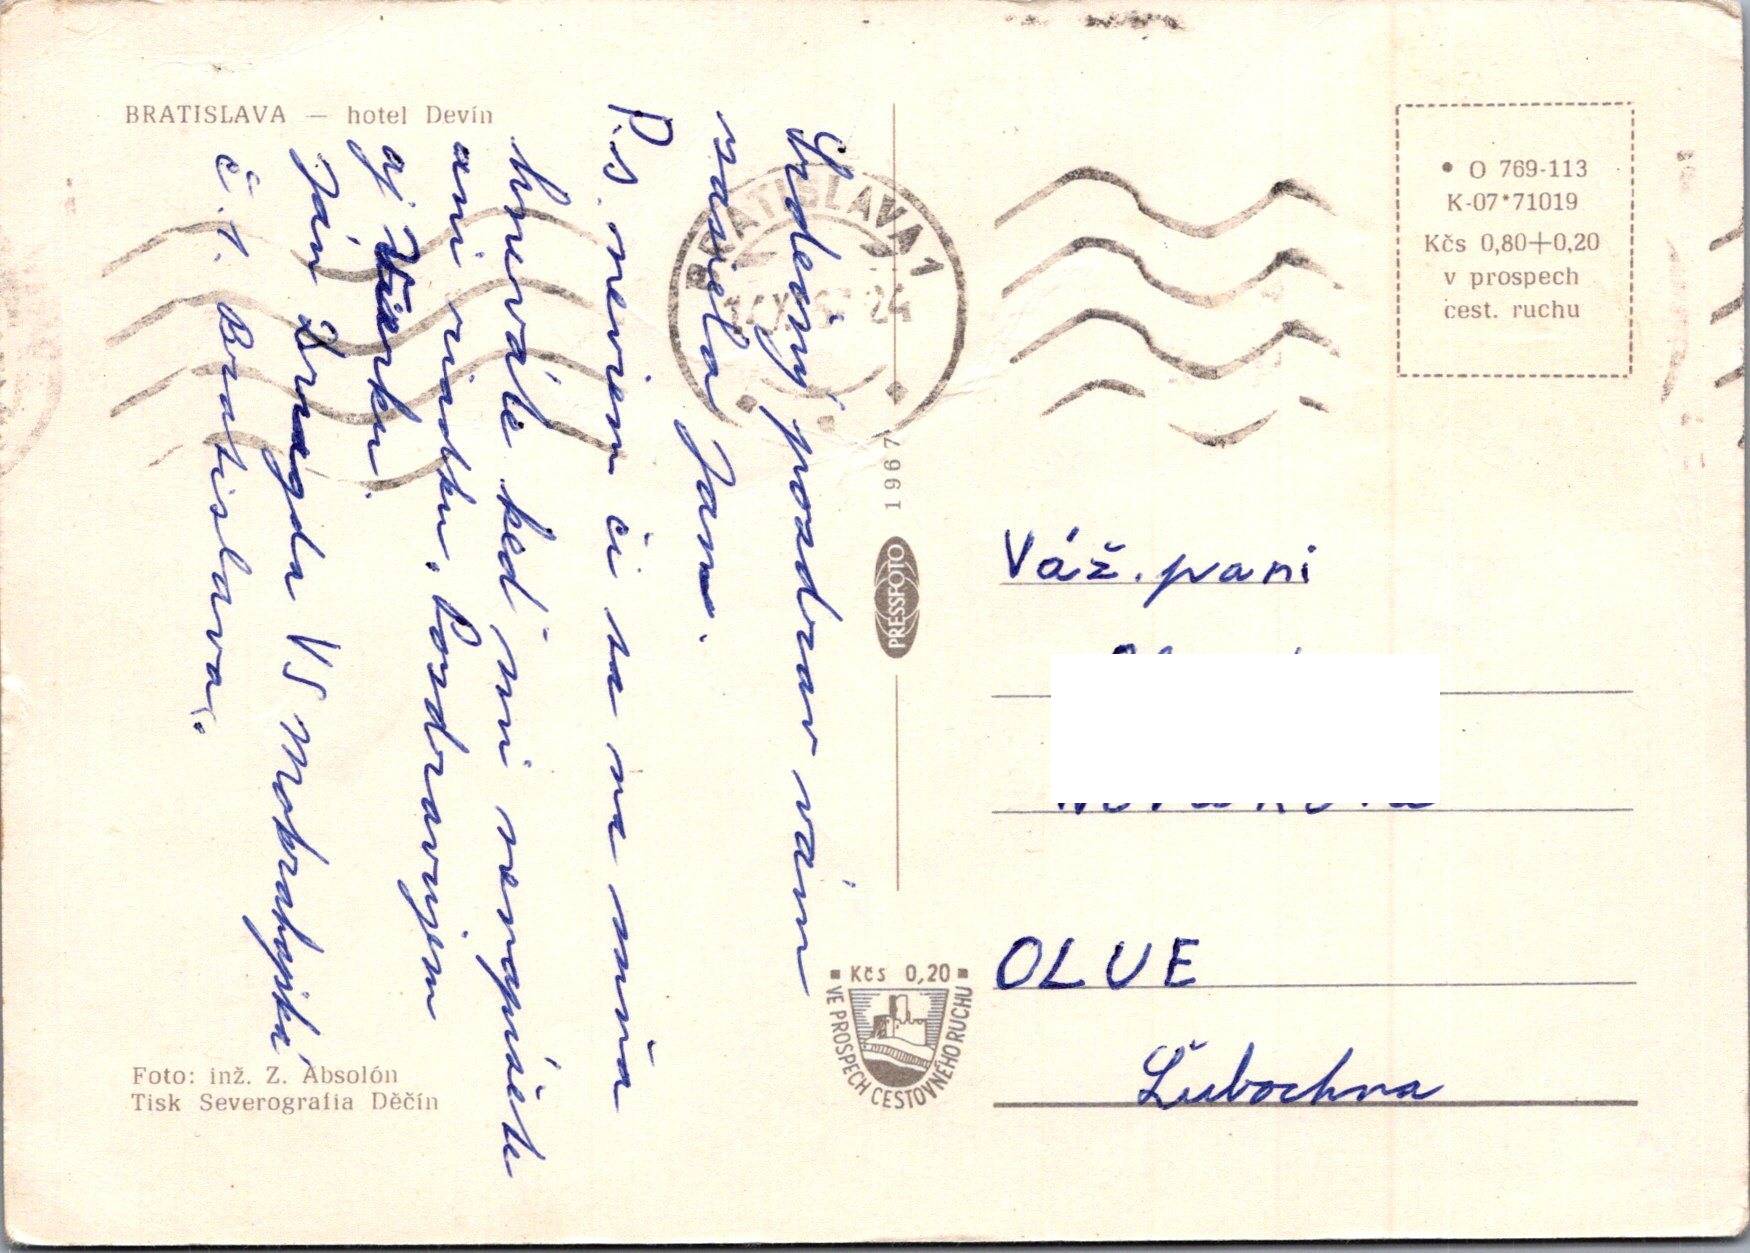 BRATISLAVA — hotel Devín
Srdečný pozdrav vám
zasiela Jano.
P.s. neviem či sa na mňa
hneváte keď mi nenapíšete
ani riadku. Pozdravujem
aj
Ján VS Mokrohájska
č. 1. Bratislava.
Foto: inž. Z. Absolón
Tisk Severografia Děčín
BRATISLAVA 1
24
1967
PRESSFOTO
Kčs 0,20
VE PROSPECH CESTOVNÉHO RUCHU
• O 769-113
K-07*71019
Kčs 0,80+0,20
v prospech
cest. ruchu
Váž. pani
OLUE
Ľubochna